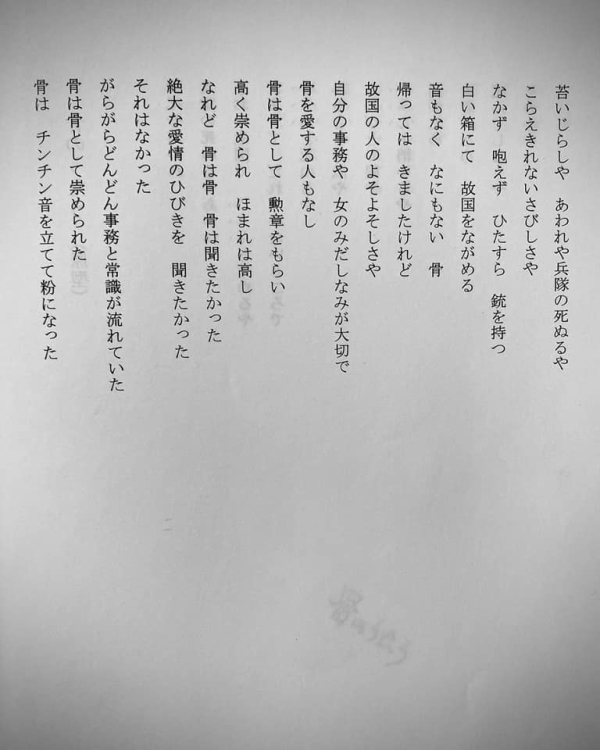 苔いじらしや　あわれや兵隊の死ぬるや
こらえきれないさびしさや
なかず　咆えず　ひたすら　銃を持つ
白い箱にて　故国をながめる
音もなく　なにもない　骨
帰っては　きましたけれど
故国の人のよそよそしさや
自分の事務や　女のみだしなみが大切で
骨を愛する人もなし
骨は骨として　勲章をもらい
高く崇められ　ほまれは高し
なれど　骨は骨　骨は聞きたかった
絶大な愛情のひびきを　聞きたかった
それはなかった
がらがらどんどん事務と常識が流れていた
骨は骨として崇められた
骨は　チンチン音を立てて粉になった
骨のうたう